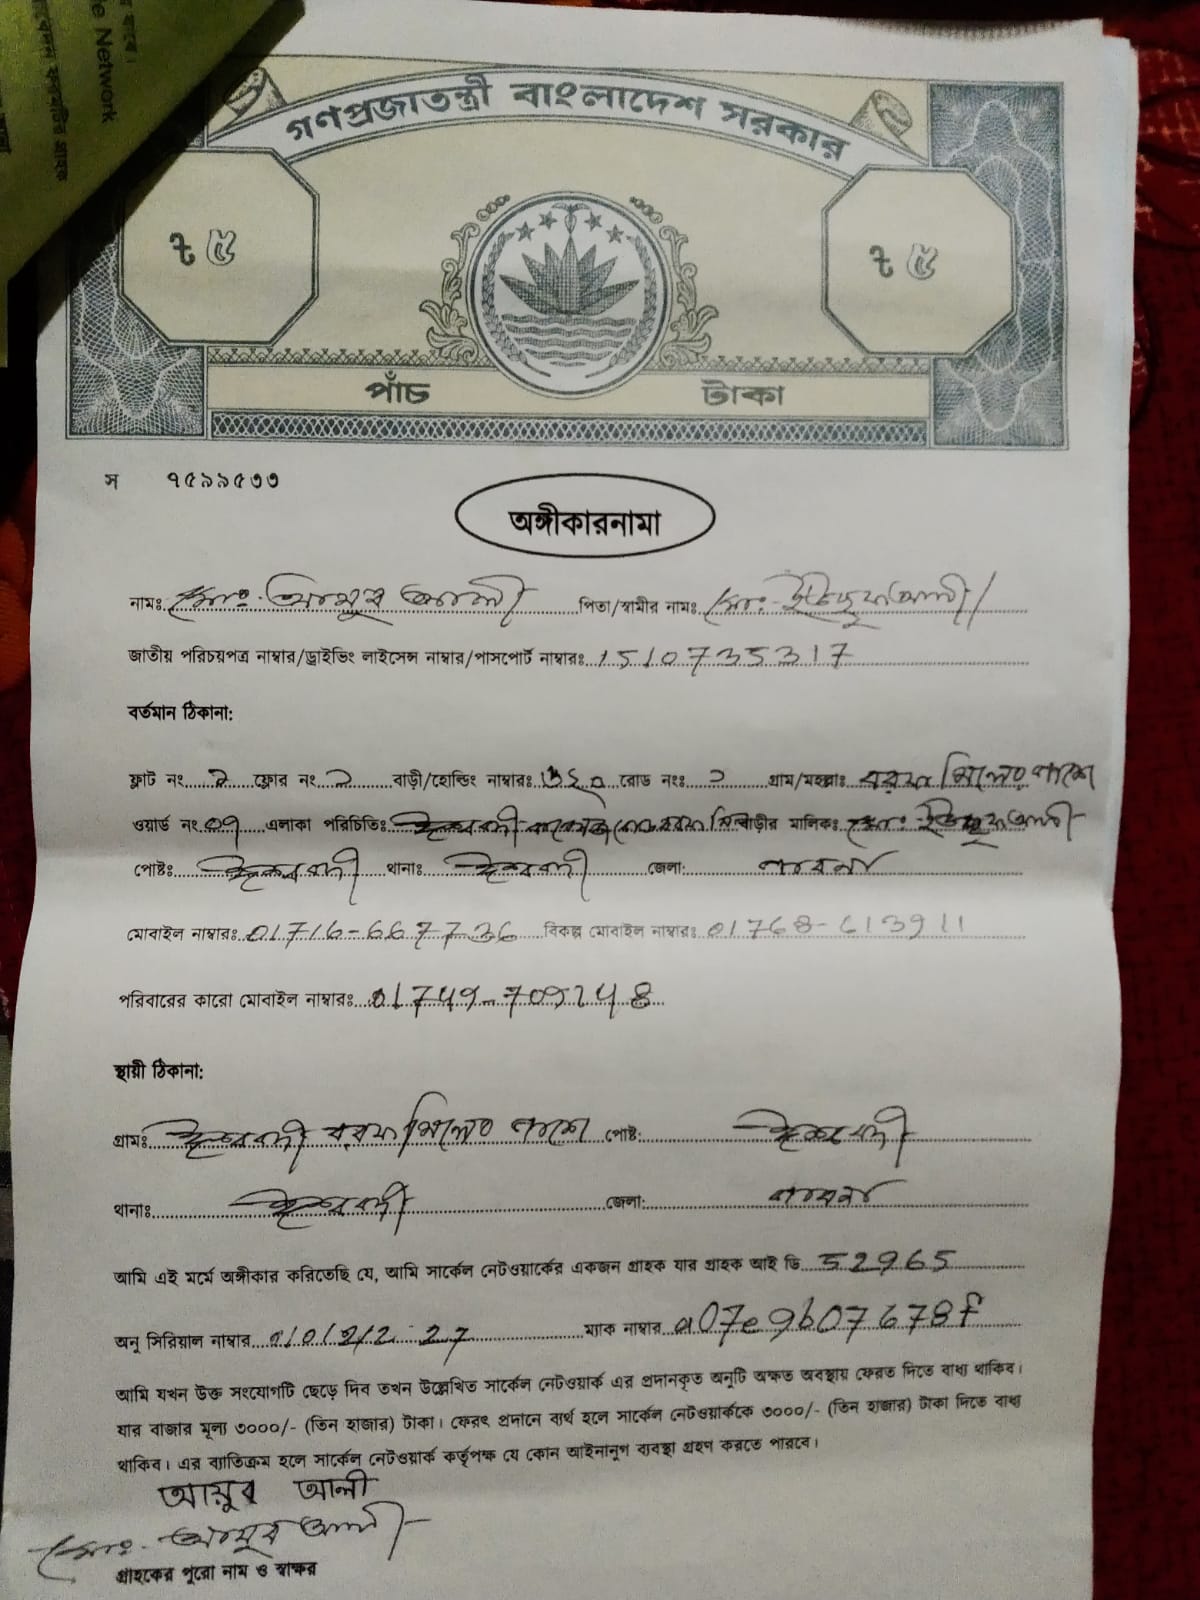 e Network
গণপ্রজাতন্ত্রী বাংলাদেশ সরকার
ট ৫ ট ৫
পাঁচ টাকা
স ৭৫৯৯৫৩৩
অঙ্গীকারনামা
নামঃ মোঃ আয়ুব আলী পিতা/স্বামীর নাম: মোঃ ইউছুফ আলী
জাতীয় পরিচয়পত্র নাম্বার/ড্রাইভিং লাইসেন্স নাম্বার/পাসপোর্ট নাম্বারঃ 1510735317
বর্তমান ঠিকানা:
ফ্লাট নং ২ ফ্লোর নং ২ বাড়ী/হোল্ডিং নাম্বারঃ রোড নংঃ গ্রাম/মহল্লাঃ বরফ মিলের পাশে
ওয়ার্ড নং 07 এলাকা পরিচিতিঃ ঈশ্বরদী বরফ মিল বাড়ীর মালিকঃ মোঃ ইউছুফ আলী
পোষ্টঃ ঈশ্বরদী থানাঃ ঈশ্বরদী জেলা: পাবনা
মোবাইল নাম্বারঃ 01716-667736 বিকল্প মোবাইল নাম্বারঃ 01768-613911
পরিবারের কারো মোবাইল নাম্বারঃ 01749-709248
স্থায়ী ঠিকানা:
গ্রামঃ ঈশ্বরদী বরফ মিলের পাশে পোষ্ট: ঈশ্বরদী
থানাঃ ঈশ্বরদী জেলা: পাবনা
আমি এই মর্মে অঙ্গীকার করিতেছি যে, আমি সার্কেল নেটওয়ার্কের একজন গ্রাহক যার গ্রাহক আই ডি 52965
অনু সিরিয়াল নাম্বার ম্যাক নাম্বার a07e9b07678f
আমি যখন উক্ত সংযোগটি ছেড়ে দিব তখন উল্লেখিত সার্কেল নেটওয়ার্ক এর প্রদানকৃত অনুটি অক্ষত অবস্থায় ফেরত দিতে বাধ্য থাকিব।
যার বাজার মূল্য ৩০০০/- (তিন হাজার) টাকা। ফেরৎ প্রদানে ব্যর্থ হলে সার্কেল নেটওয়ার্ককে ৩০০০/- (তিন হাজার) টাকা দিতে বাধ্য
থাকিব। এর ব্যতিক্রম হলে সার্কেল নেটওয়ার্ক কর্তৃপক্ষ যে কোন আইনানুগ ব্যবস্থা গ্রহণ করতে পারবে।
আয়ুব আলী
মোঃ আয়ুব আলী
গ্রাহকের পুরো নাম ও স্বাক্ষর